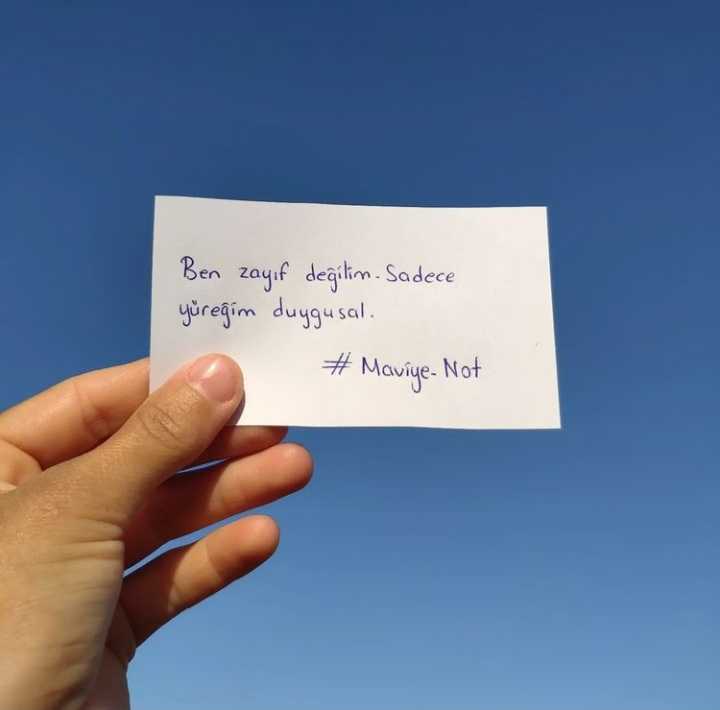 Ben zayıf değilim. Sadece
yüreğim duygusal.
# Maviye-Not